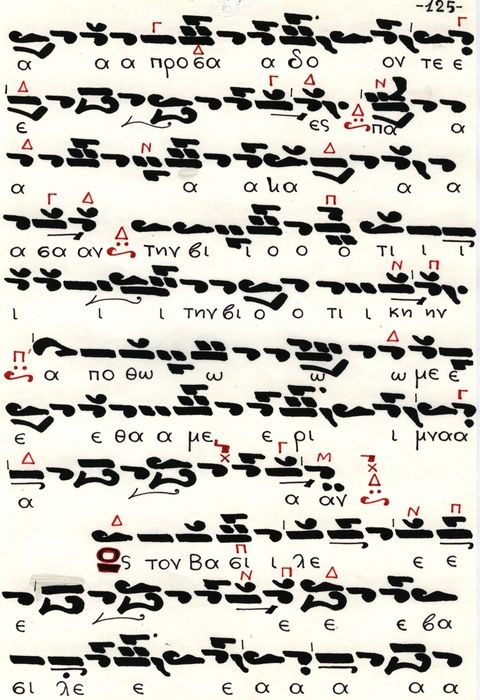 -125-
α α α προσα α δο ον τε ε
ε ες πα α
α α α κα α α
α σα αν την βι ι ο ο ο τι ι ι
ι ι ι την βι ο ο τι ι κη ην
α πο θω ω ω ω με ε
ε ε θα α με ε ρι ι μναα
α α αν
Ος τον Βα σι ι λε ε ε
ε ε ε ε βα
σι λε ε ε α α α α α